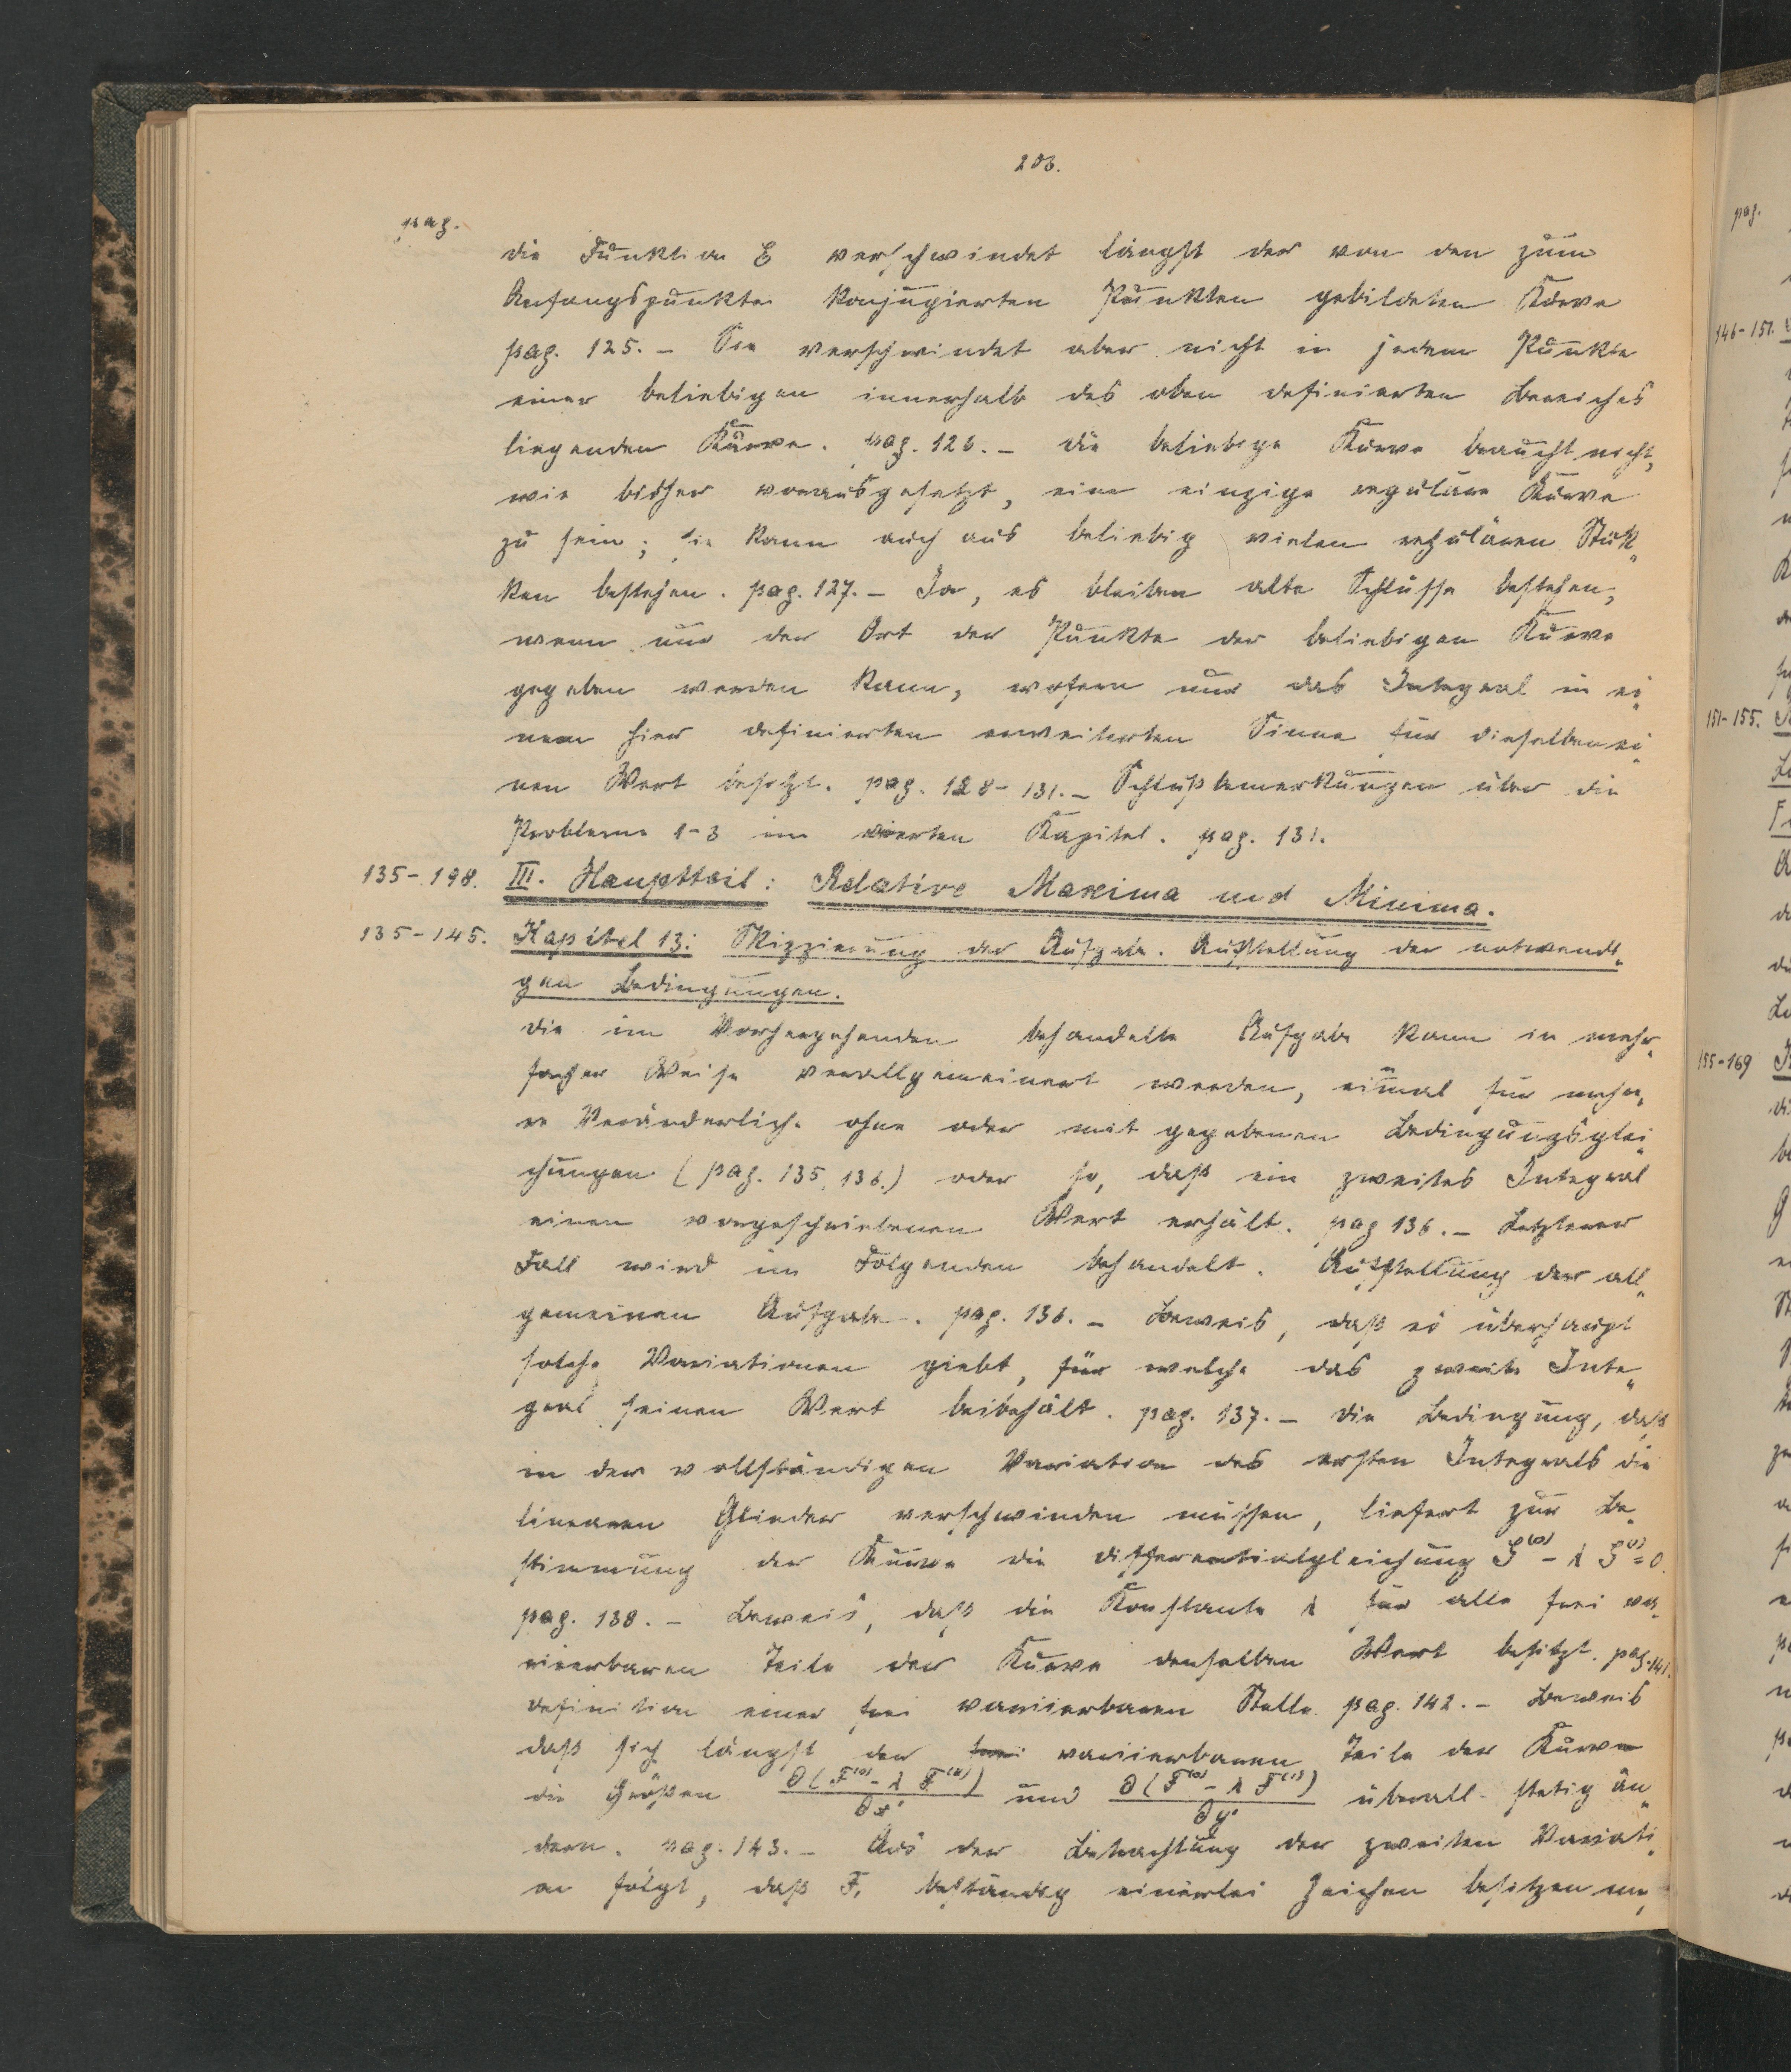 206.
pag.
die Funktion E verschwindet längst der von den zum
Anfangspunkte konjugierten Punkten gebildeten Kurve
pag. 125. – Sie verschwindet aber nicht in jedem Punkte
einer beliebigen innerhalb des oben definierten Bereiches
liegenden Kurve. pag. 126. – die beliebige Kurve braucht nicht,
wie bisher vorausgesetzt, eine einzige reguläre Kurve
zu sein; sie kann auch aus beliebig vielen regulären Stük„
ken bestehen. pag. 127. – Ja, es bleiben alle Schlüsse bestehen,
wenn nur der Ort der Punkte der beliebigen Kurve
gegeben werden kann, wofern nur das Integral in ei„
nem hier definierten erweiterten Sinne für dieselben ei„
nen Wert besitzt. pag. 128-131. – Schlußbemerkungen über die
Probleme 1-3 im vierten Kapitel. pag. 131.
135-198. III. Hauptteil: Relative Maxima und Minima.
135-145. Kapitel 13: Skizzierung der Aufgabe. Aufstellung der notwendi„
gen Bedingungen.
die im Vorhergehenden behandelte Aufgabe kann in mehr„
facher Weise verallgemeinert werden, einmal für mehre„
re Veränderliche ohne oder mit gegebenen Bedingungsglei„
chungen (pag. 135, 136.) oder so, daß ein zweites Integral
einen vorgeschriebenen Wert erhält. pag 136. – Letzterer
Fall wird im Folgenden behandelt. Aufstellung der all„
gemeinen Aufgabe. pag. 136. – Beweis, daß es überhaupt
solche Variationen giebt, für welche das zweite Inte„
gral seinen Wert beibehält. pag. 137. – die Bedingung, daß
in der vollständigen Variation des ersten Integrals die
linearen Glieder verschwinden müssen, liefert zur Be„
stimmung der Kurve die differentialgleichung G⁽⁰⁾ - λ G⁽¹⁾ = 0.
pag. 138. – Beweis, daß die Konstante λ für alle frei va„
riierbaren Teile der Kurve denselben Wert besitzt. pag. 141.
definition einer frei variierbaren Stelle pag. 142. – Beweis
daß sich längst der frei variierbaren Teile der Kurve
die Größen ∂(F⁽⁰⁾ - λ F⁽¹⁾)/∂x' und ∂(F⁽⁰⁾ - λ F⁽¹⁾)/∂y' überall stetig än„
dern. pag. 143. – Aus der Betrachtung der zweiten Variati„
on folgt, daß F₁ beständig einerlei Zeichen besitzen
pag.
146-151.
151-155.
155-169